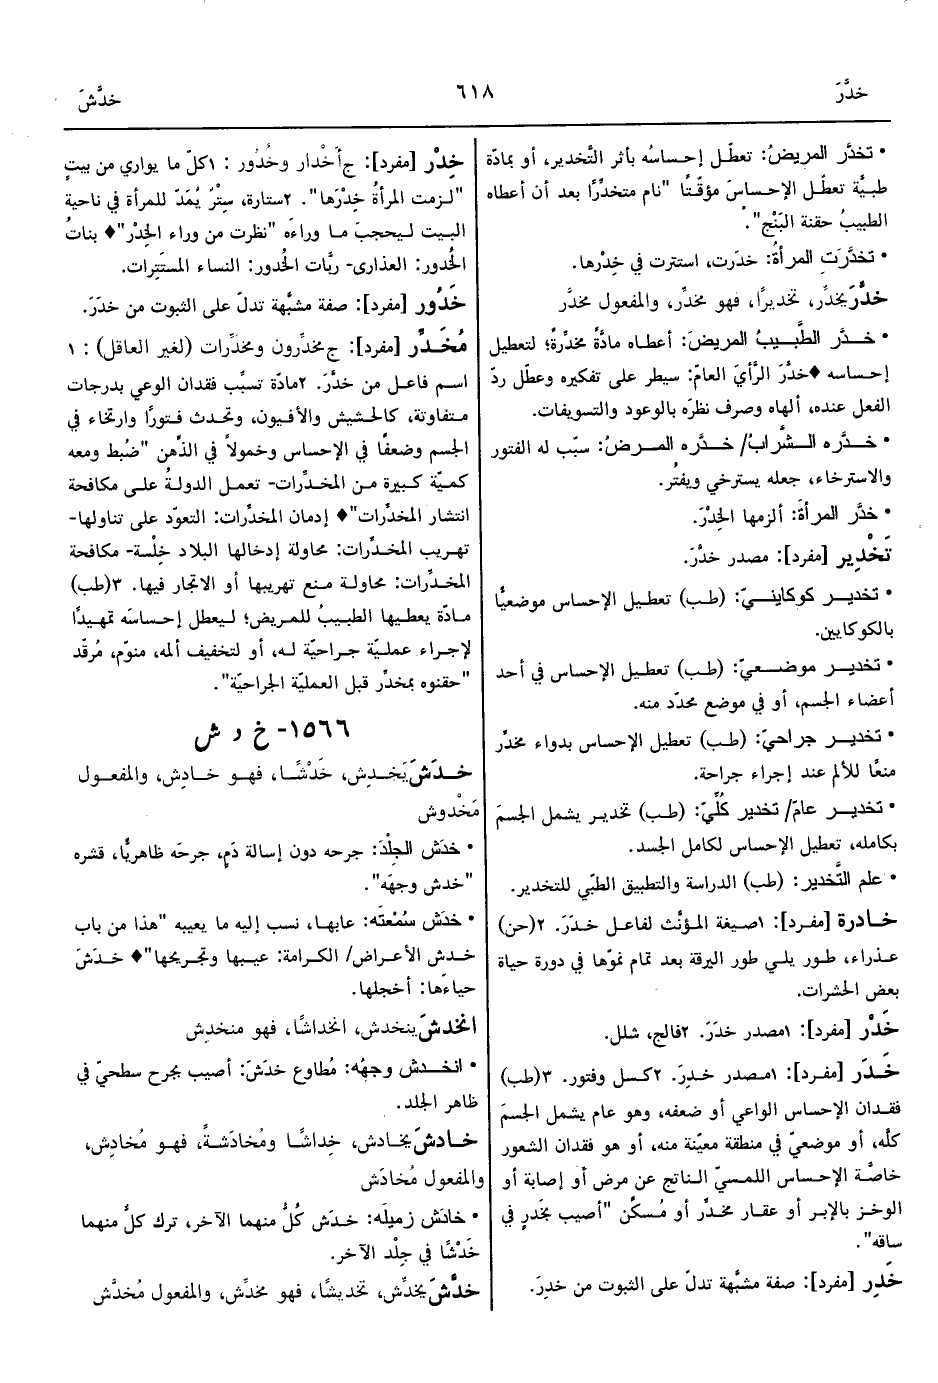 خدَّرَ
٦١٨
خدَّشَ
• تخدَّر المريضُ: تعطّل إحساسُه بأثر التَّخدير، أو بمادّة
طبيَّة تعطّل الإحساسَ مؤقّتًا "نام متخدِّرًا بعد أن أعطاه
الطبيبُ حقنة البَنْج".
• تخدَّرَتِ المرأةُ: خدَرت، استترت في خِدْرها.
خدَّرَ يخدِّر، تخديرًا، فهو مخدِّر، والمفعول مخدَّر
• خدَّر الطَّبيبُ المريضَ: أعطاه مادَّةً مخدِّرةً؛ لتعطيل
إحساسه ♦ خدَّرَ الرَّأيَ العامّ: سيطر على تفكيره وعطّل ردّ
الفعل عنده، ألهاه وصرف نظرَه بالوعود والتسويفات.
• خدَّره الشَّرابُ/ خدَّره المرضُ: سبّب له الفتور
والاسترخاء، جعله يسترخي ويفتُر.
• خدَّر المرأةَ: ألزمها الخِدْرَ.
تَخْدِير [مفرد]: مصدر خدَّرَ.
• تخدير كوكاينيّ: (طب) تعطيل الإحساس موضعيًّا
بالكوكايين.
• تخدير موضعيّ: (طب) تعطيل الإحساس في أحد
أعضاء الجسم، أو في موضع محدّد منه.
• تخدير جراحيّ: (طب) تعطيل الإحساس بدواء مخدِّر
منعًا للألم عند إجراء جراحة.
• تخدير عامّ/ تخدير كُلِّيّ: (طب) تخدير يشمل الجسمَ
بكامله، تعطيل الإحساس لكامل الجسد.
• علم التَّخدير: (طب) الدراسة والتطبيق الطبّي للتخدير.
خادرة [مفرد]: ١صيغة المؤنَّث لفاعل خدَرَ. ٢(حن)
عذراء، طور يلي طور اليرقة بعد تمام نموّها في دورة حياة
بعض الحشرات.
خَدْر [مفرد]: ١مصدر خدَرَ. ٢فالج، شلل.
خَدَر [مفرد]: ١مصدر خدِرَ. ٢كسل وفتور. ٣(طب)
فقدان الإحساس الواعي أو ضعفه، وهو عام يشمل الجسمَ
كلَّه، أو موضعيّ في منطقة معيّنة منه، أو هو فقدان الشعور
خاصَّة الإحساس اللمسيّ الناتج عن مرض أو إصابة أو
الوخز بالإبر أو عقار مخدِّر أو مُسكِّن "أصيب بخَدرٍ في
ساقه".
خَدِر [مفرد]: صفة مشبَّهة تدلّ على الثبوت من خدِرَ.
خِدْر [مفرد]: ج أَخْدار وخُدُور : ١كلّ ما يواري من بيتٍ
"لزمت المرأةُ خِدْرَها". ٢ستارة، سِتْرٌ يُمَدّ للمرأة في ناحية
البيت ليحجبَ ما وراءَه "نظرت من وراء الخِدْر" ♦ بناتُ
الخُدور: العذارى- ربَّات الخُدور: النساء المستَتِرات.
خَدُور [مفرد]: صفة مشبَّهة تدلّ على الثبوت من خدَرَ.
مُخَدِّر [مفرد]: ج مخدِّرون ومخدِّرات (لغير العاقل) : ١
اسم فاعل من خدَّرَ. ٢مادّة تسبِّب فقدان الوعي بدرجات
متفاوتة، كالحشيش والأفيون، وتحدث فتورًا وارتخاء في
الجسم وضعفًا في الإحساس وخمولاً في الذِّهن "ضُبط ومعه
كميّة كبيرة من المخدِّرات- تعمل الدولةُ على مكافحة
انتشار المخدِّرات" ♦ إدمان المخدِّرات: التعوّد على تناولها-
تهريب المخدِّرات: محاولة إدخالها البلاد خلْسة- مكافحة
المخدِّرات: محاولة منع تهريبها أو الاتجار فيها. ٣(طب)
مادّة يعطيها الطبيبُ للمريض؛ ليعطل إحساسَه تمهيدًا
لإجراء عمليّة جراحية له، أو لتخفيف ألمه، منوّم، مُرقّد
"حقنوه بمخدِّر قبل العمليّة الجراحيّة".
١٥٦٦- خ د ش
خدَشَ يَخدِش، خَدْشًا، فهو خادِش، والمفعول
مَخْدوش
• خدَش الجِلْدَ: جرحه دون إسالة دَمٍ، جرحَه ظاهريًّا، قشره
"خدش وجهَه".
• خدَش سُمْعتَه: عابها، نسب إليه ما يعيبه "هذا من باب
خدش الأعراض/ الكرامة: عيبها وتجريحها" ♦ خدَشَ
حياءَها: أخجلها.
انخدشَ ينخدش، انخداشًا، فهو منخدِش
• انخدش وجهُه: مُطاوع خدَشَ: أصيب بجرح سطحيّ في
ظاهر الجلد.
خادشَ يخادش، خِداشًا ومُخادَشةً، فهو مُخادِش،
والمفعول مُخادَش
• خادَش زميلَه: خدَش كُلٌّ منهما الآخر، ترك كلٌّ منهما
خَدْشًا في جِلْد الآخر.
خدَّشَ يخدِّش، تخديشًا، فهو مخدِّش، والمفعول مُخدَّش